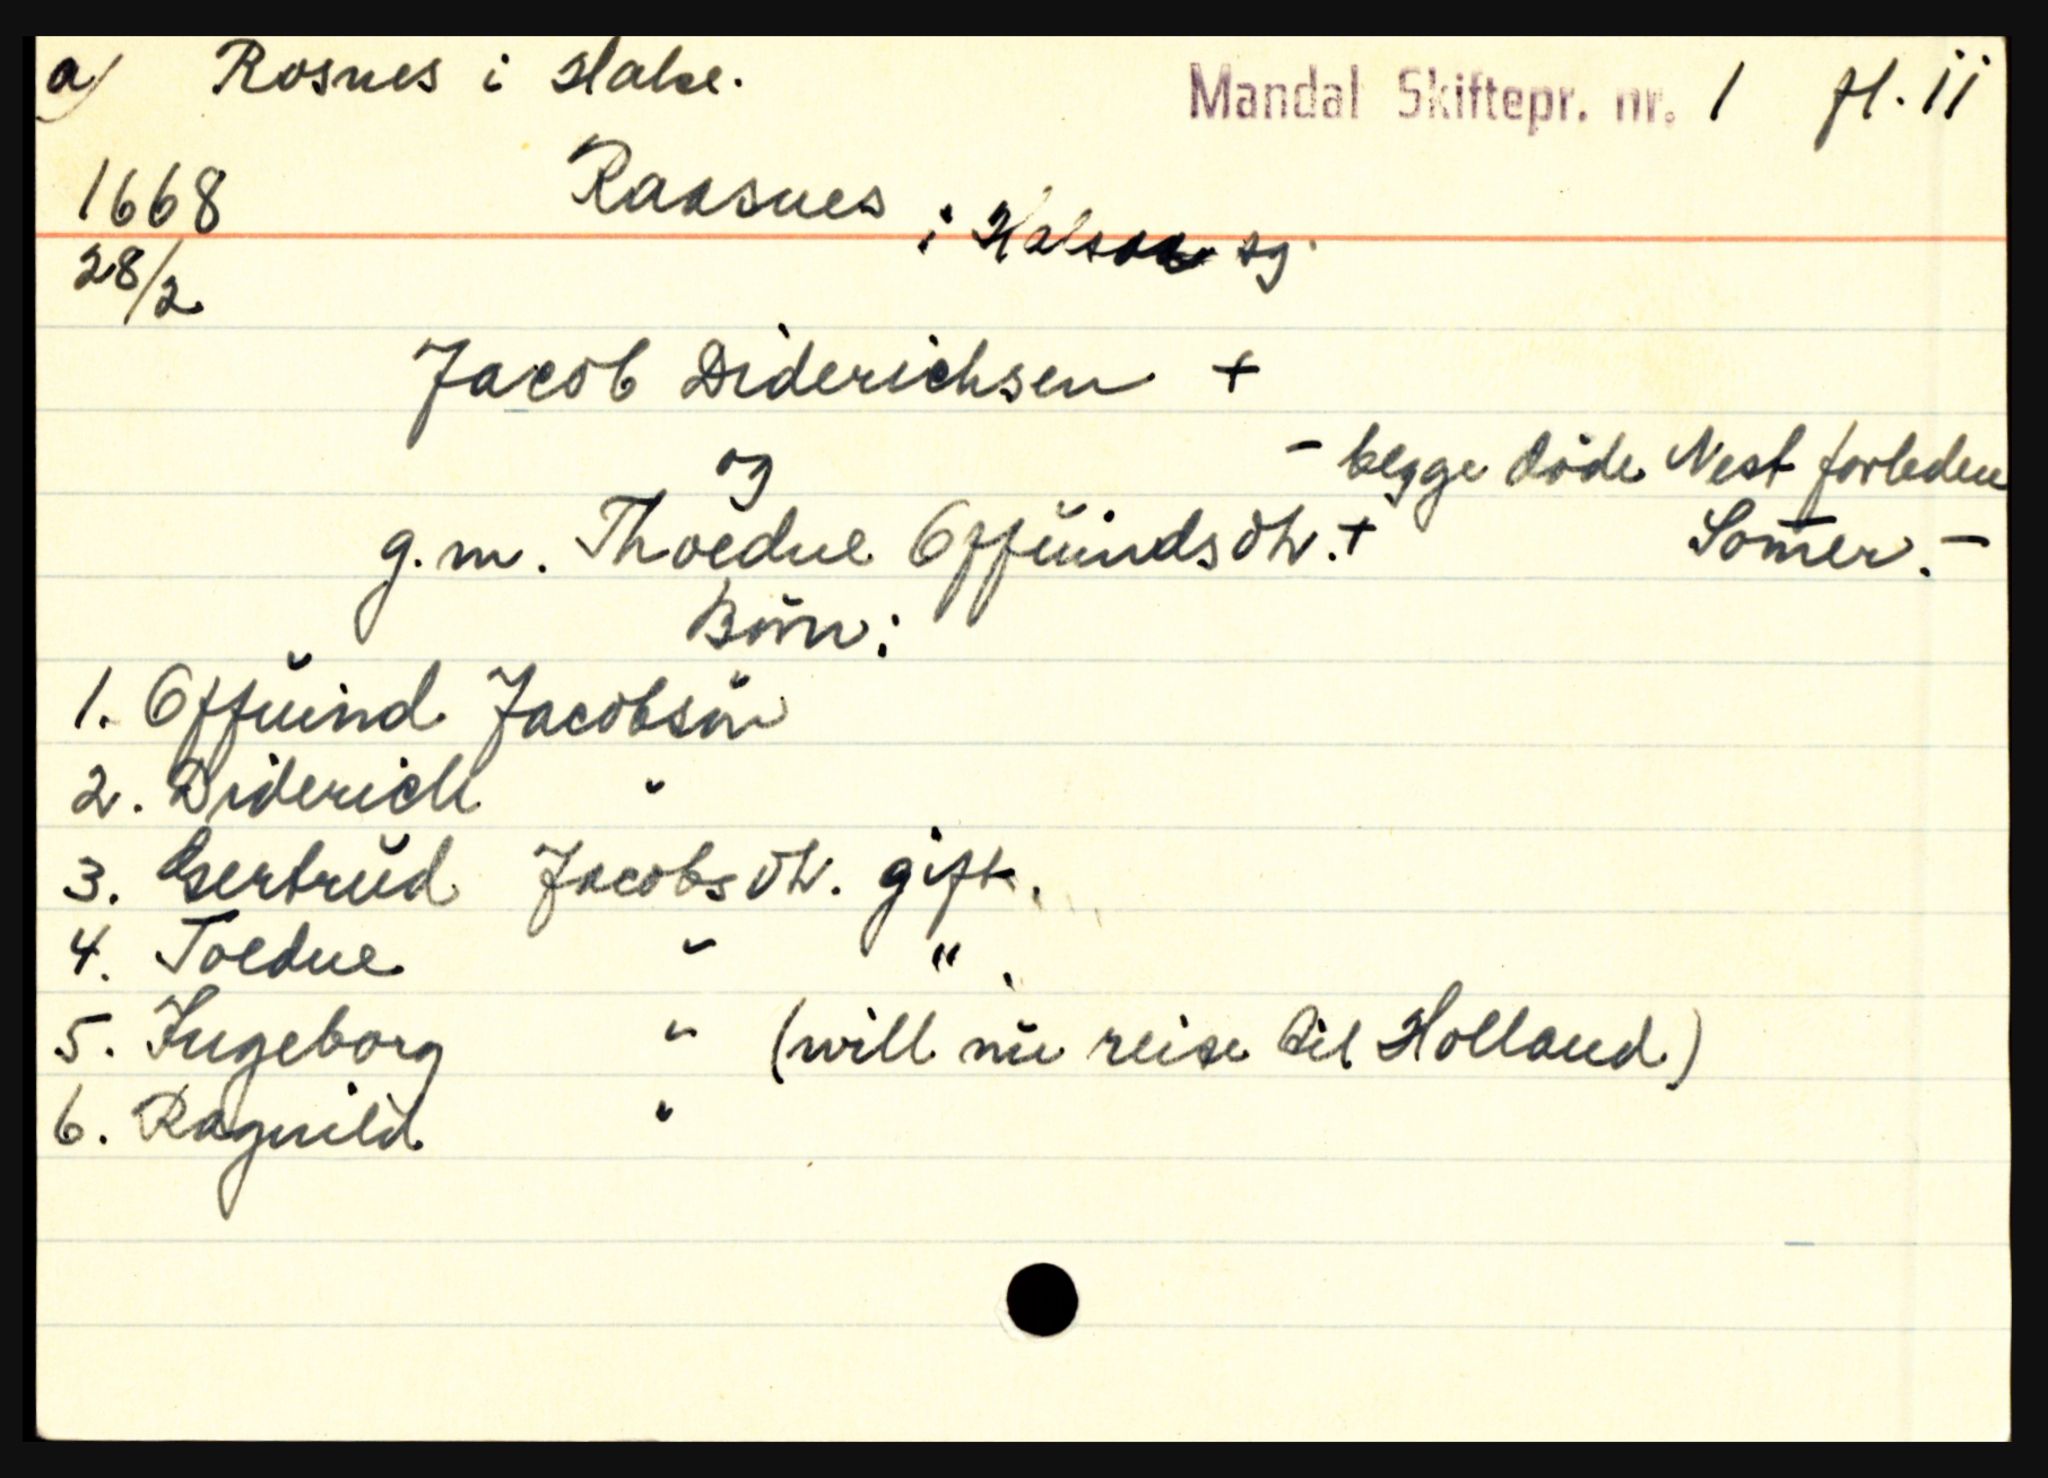 a) Rosnes i Halse. Mandal Skiftepr. nr. 1 fl. 11
1668 Raasnes i sg.
28/2
Jacob Diderichsen +
og - begge döde Nest forleden
g.m. Thoedne Offŭindsdtr. + Som̄er. -
Börn:
1. Offŭind Jacobsön
2. Diderich "
3. Gertrŭd Jacobsdtr. gift.
4. Toedne " " .
5. Ingeborg " (will nŭ reise til Holland)
6. Ragnild "